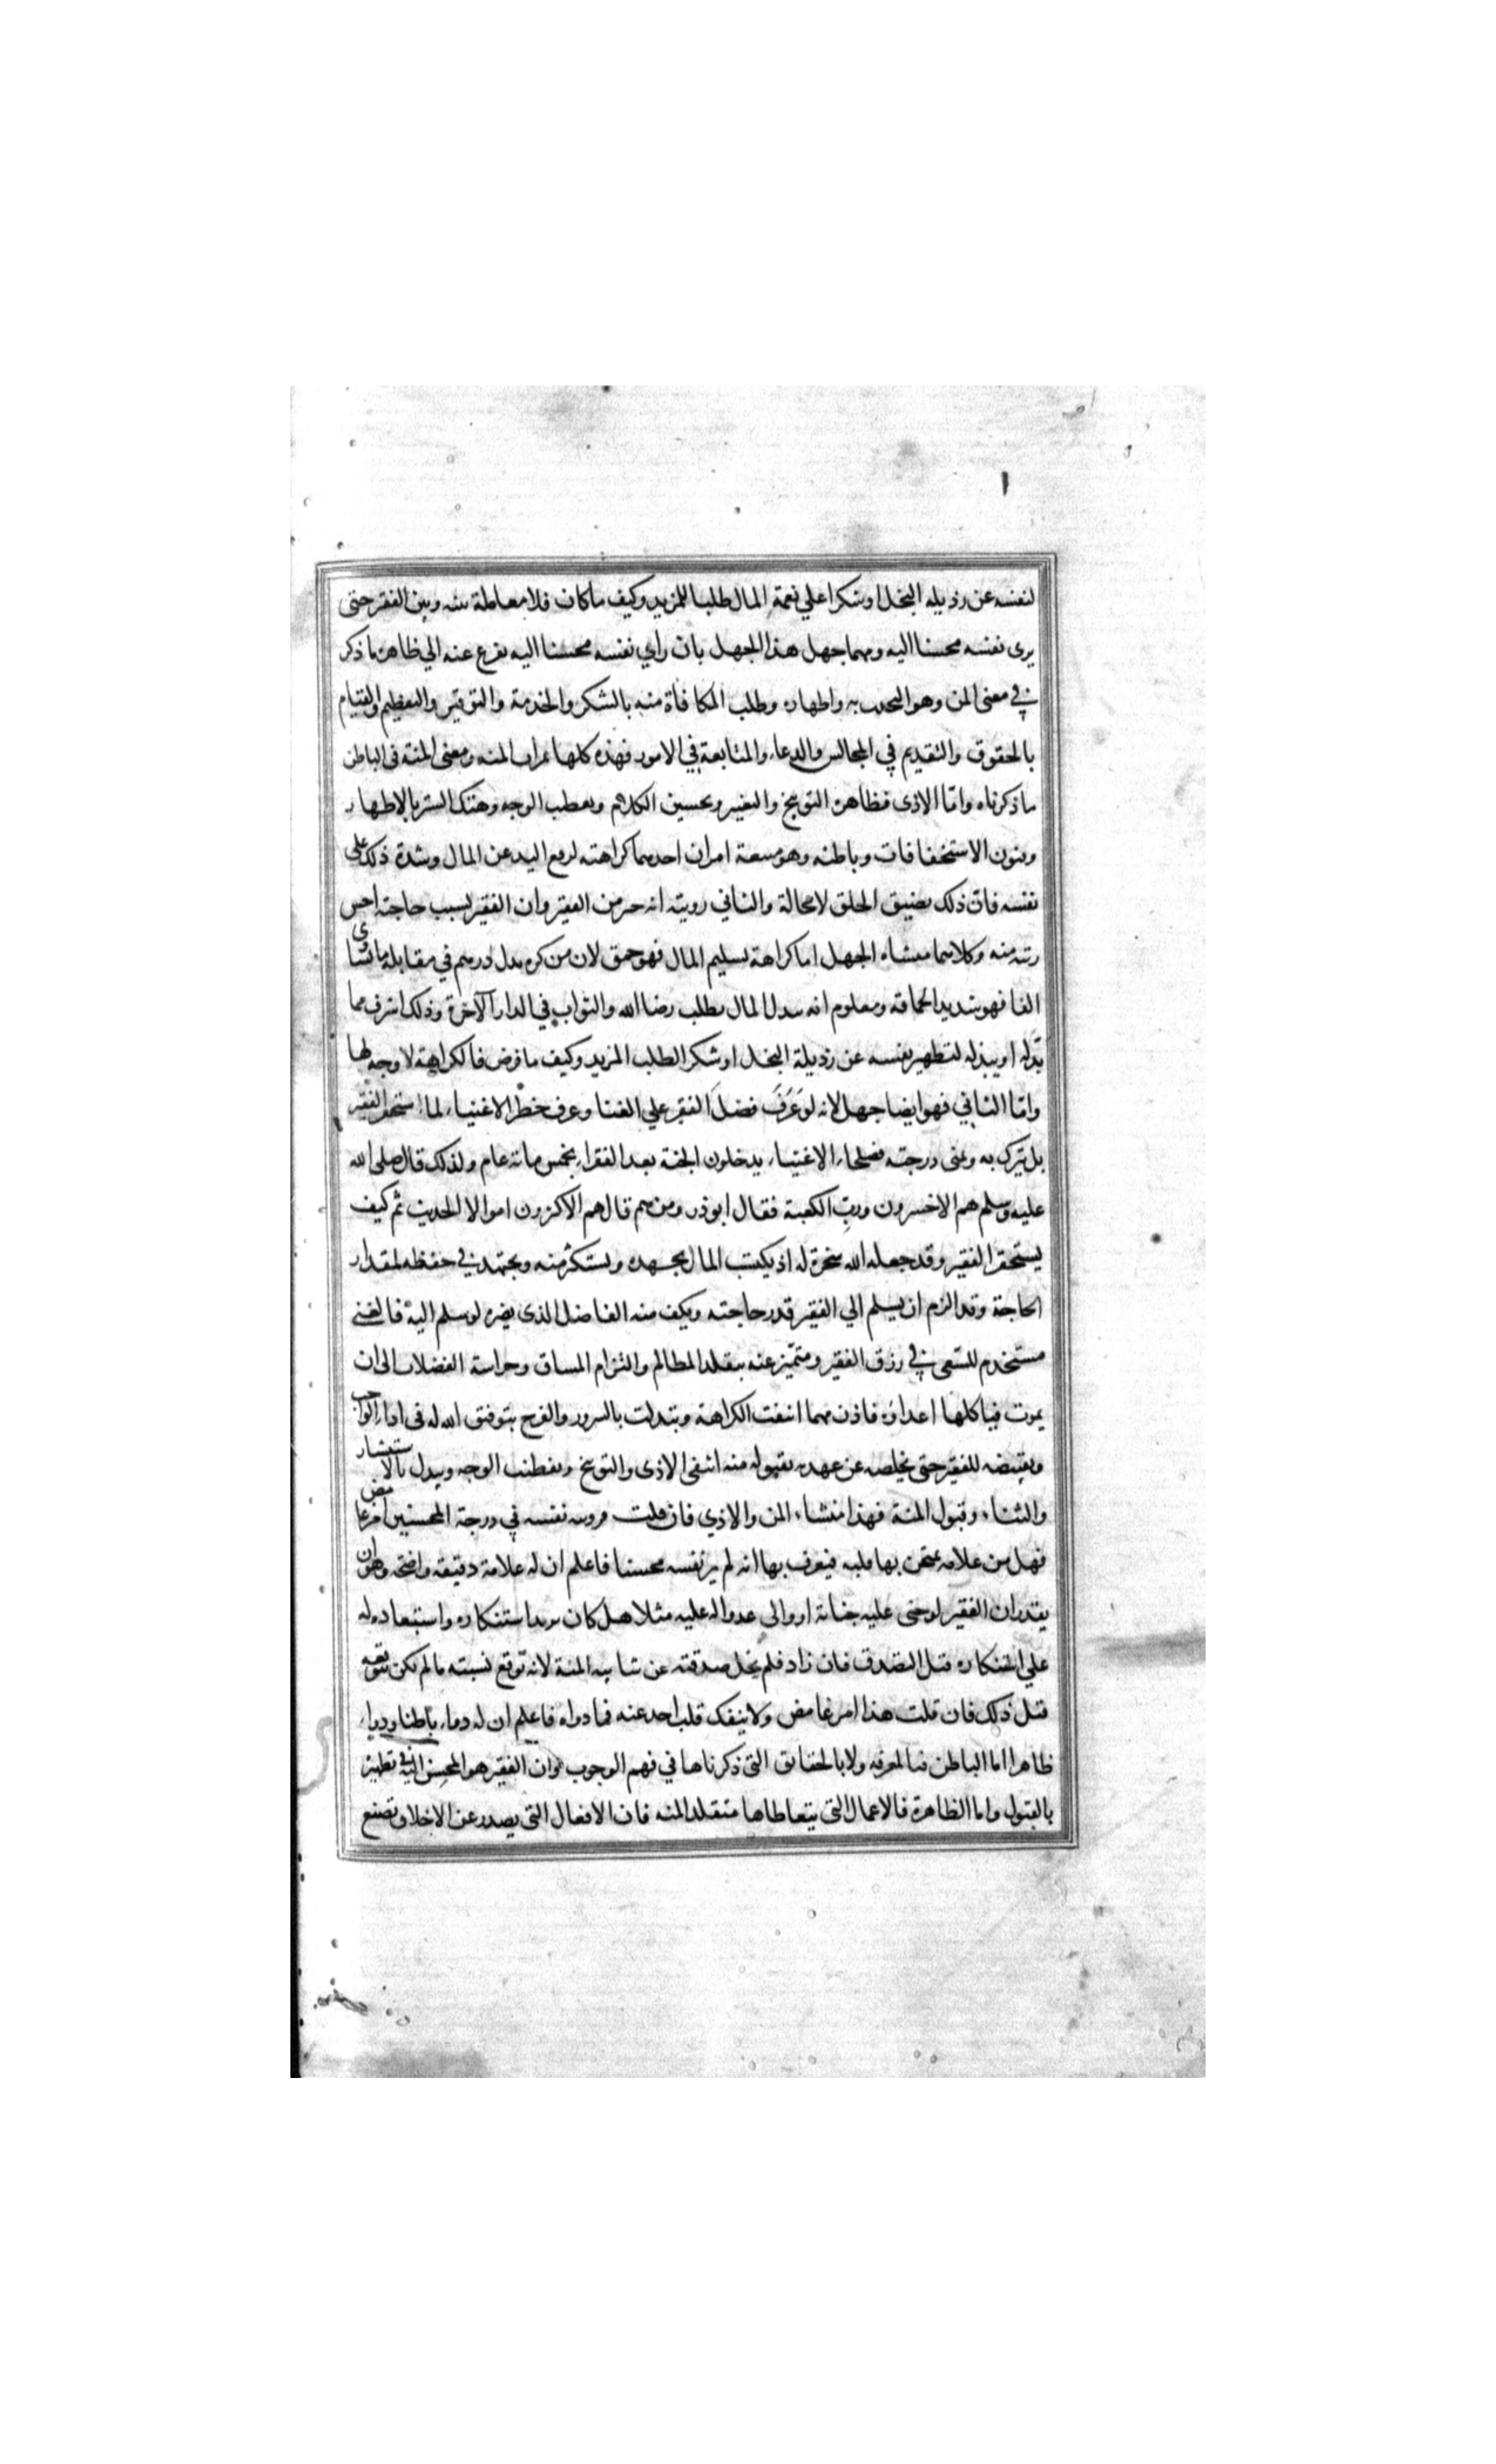 لنفسه عن رذيله البخل او شكرا علي نعمة المال طلبا للمزيد وكيف ماكان فلا معاملة بينه وبين الفقير حتى
يرى نفسه محسنا اليه ومهما جهل هذا الجهل بان راي نفسه محسنا اليه تفرع عنه الي ظاهره ما ذكر
في معنى المن وهو التحدث به واظهاره وطلب المكافاة منه بالشكر والخدمة والتوقير والتعظيم والقيام
بالحقوق والتقديم في المجالس والدعاء والمتابعة في الامور فهذه كلها ثمرات المنه ومعنى المنة فى الباطن
ما ذكرناه وامّا الاذى فظاهره التوبيخ والتعيير وتخشين الكلام وتقطيب الوجه وهتك الستر بالاظهار
وفنون الاستخفافات وباطنه وهو منبعة امران احدهما كراهته لرفع اليد عن المال وشدة ذلك على
نفسه فان ذلك يضيق الخلق لا محالة والثاني رويته انه خير من الفقير وان الفقير لسبب حاجته اخس
رتبة منه وكلاهما منشاه الجهل اما كراهة تسليم المال فهو حمق لان من كره بذل درهم في مقابلة ما يساوى
الفا فهو شديد الحماقه ومعلوم انه يبذل المال بطلب رضا الله والثواب في الدار الآخرة وذلك اشرف مما
بذله او يبذله لتطهير نفسه عن رذيلة البخل او شكر الطلب المزيد وكيف ما فرض فالكراهة لا وجه لها
وامّا الثاني فهو ايضا جهل لانه لو عَرَفَ فضلَ الفقر علي الغنا وعرف خطر الاغنياء لما استحقر الفقير
بل تبرك به وتمنى درجته فصلحاء الاغنياء يدخلون الجنة بعد الفقراء بخمس مائة عام ولذلك قال صلى الله
عليه وسلم هم الاخسرون وربّ الكعبة فقال ابو ذر ومن هم قال هم الاكثرون اموالا الحديث ثم كيف
يستحقر الفقير وقد جعله الله سخرة له اذ يكتسب المال بجهده ويستكثر منه ويجتهد في حفظه لمقدار
الحاجة وقد الزم ان يسلم الي الفقير قدر حاجته ويكف منه الفاضل الذى يضره لو سلم اليه فالغنى
مستخدم للسّعى في رزق الفقير ومتميّز عنه بتقلد المظالم والتزام المساق وحراسة الفضلات الى ان
يموت فياكلها اعداؤه فاذن مهما انتفت الكراهة وتبدلت بالسرور والفرح بتوفيق الله له فى اداء الواجب
وتقبيضه للفقير حتى يخلصه عن عهدته بقبوله منه انتفى الاذى والتوبيخ وتقطيب الوجه ويبدل بالاستبشار
والثناء وقبول المنة فهذا منشاء المن والاذي فان قلت فرويه نفسه في درجة المحسنين امر غامض
فهل من علامه يمتحن بها قلبه فيعرف بها انه لم ير نفسه محسنا فاعلم ان له علامة دقيقه واضحة وهو ان
يقدر ان الفقير لو جنى عليه جناية او والى عدوا له عليه مثلا هل كان يزيد استنكاره واستبعاده له
علي استنكاره قبل التصدق فان زاد فلم يخل صدقته عن شايبه المنة لانه توقع بسببه ما لم يكن يتوقعه
قبل ذلك فان قلت هذا امر غامض ولا ينفك قلب احد عنه فما دواه فاعلم ان له دواء باطنا ودواء
ظاهرا اما الباطن فبالمعرفه ولا بالحقايق التى ذكرناها في فهم الوجوب وان الفقير هو المحسن اليه في تطهيره
بالقبول واما الظاهرة فالاعمال التى يتعاطاها متقلد المنه فان الافعال التى يصدر عن الاخلاق تصنع